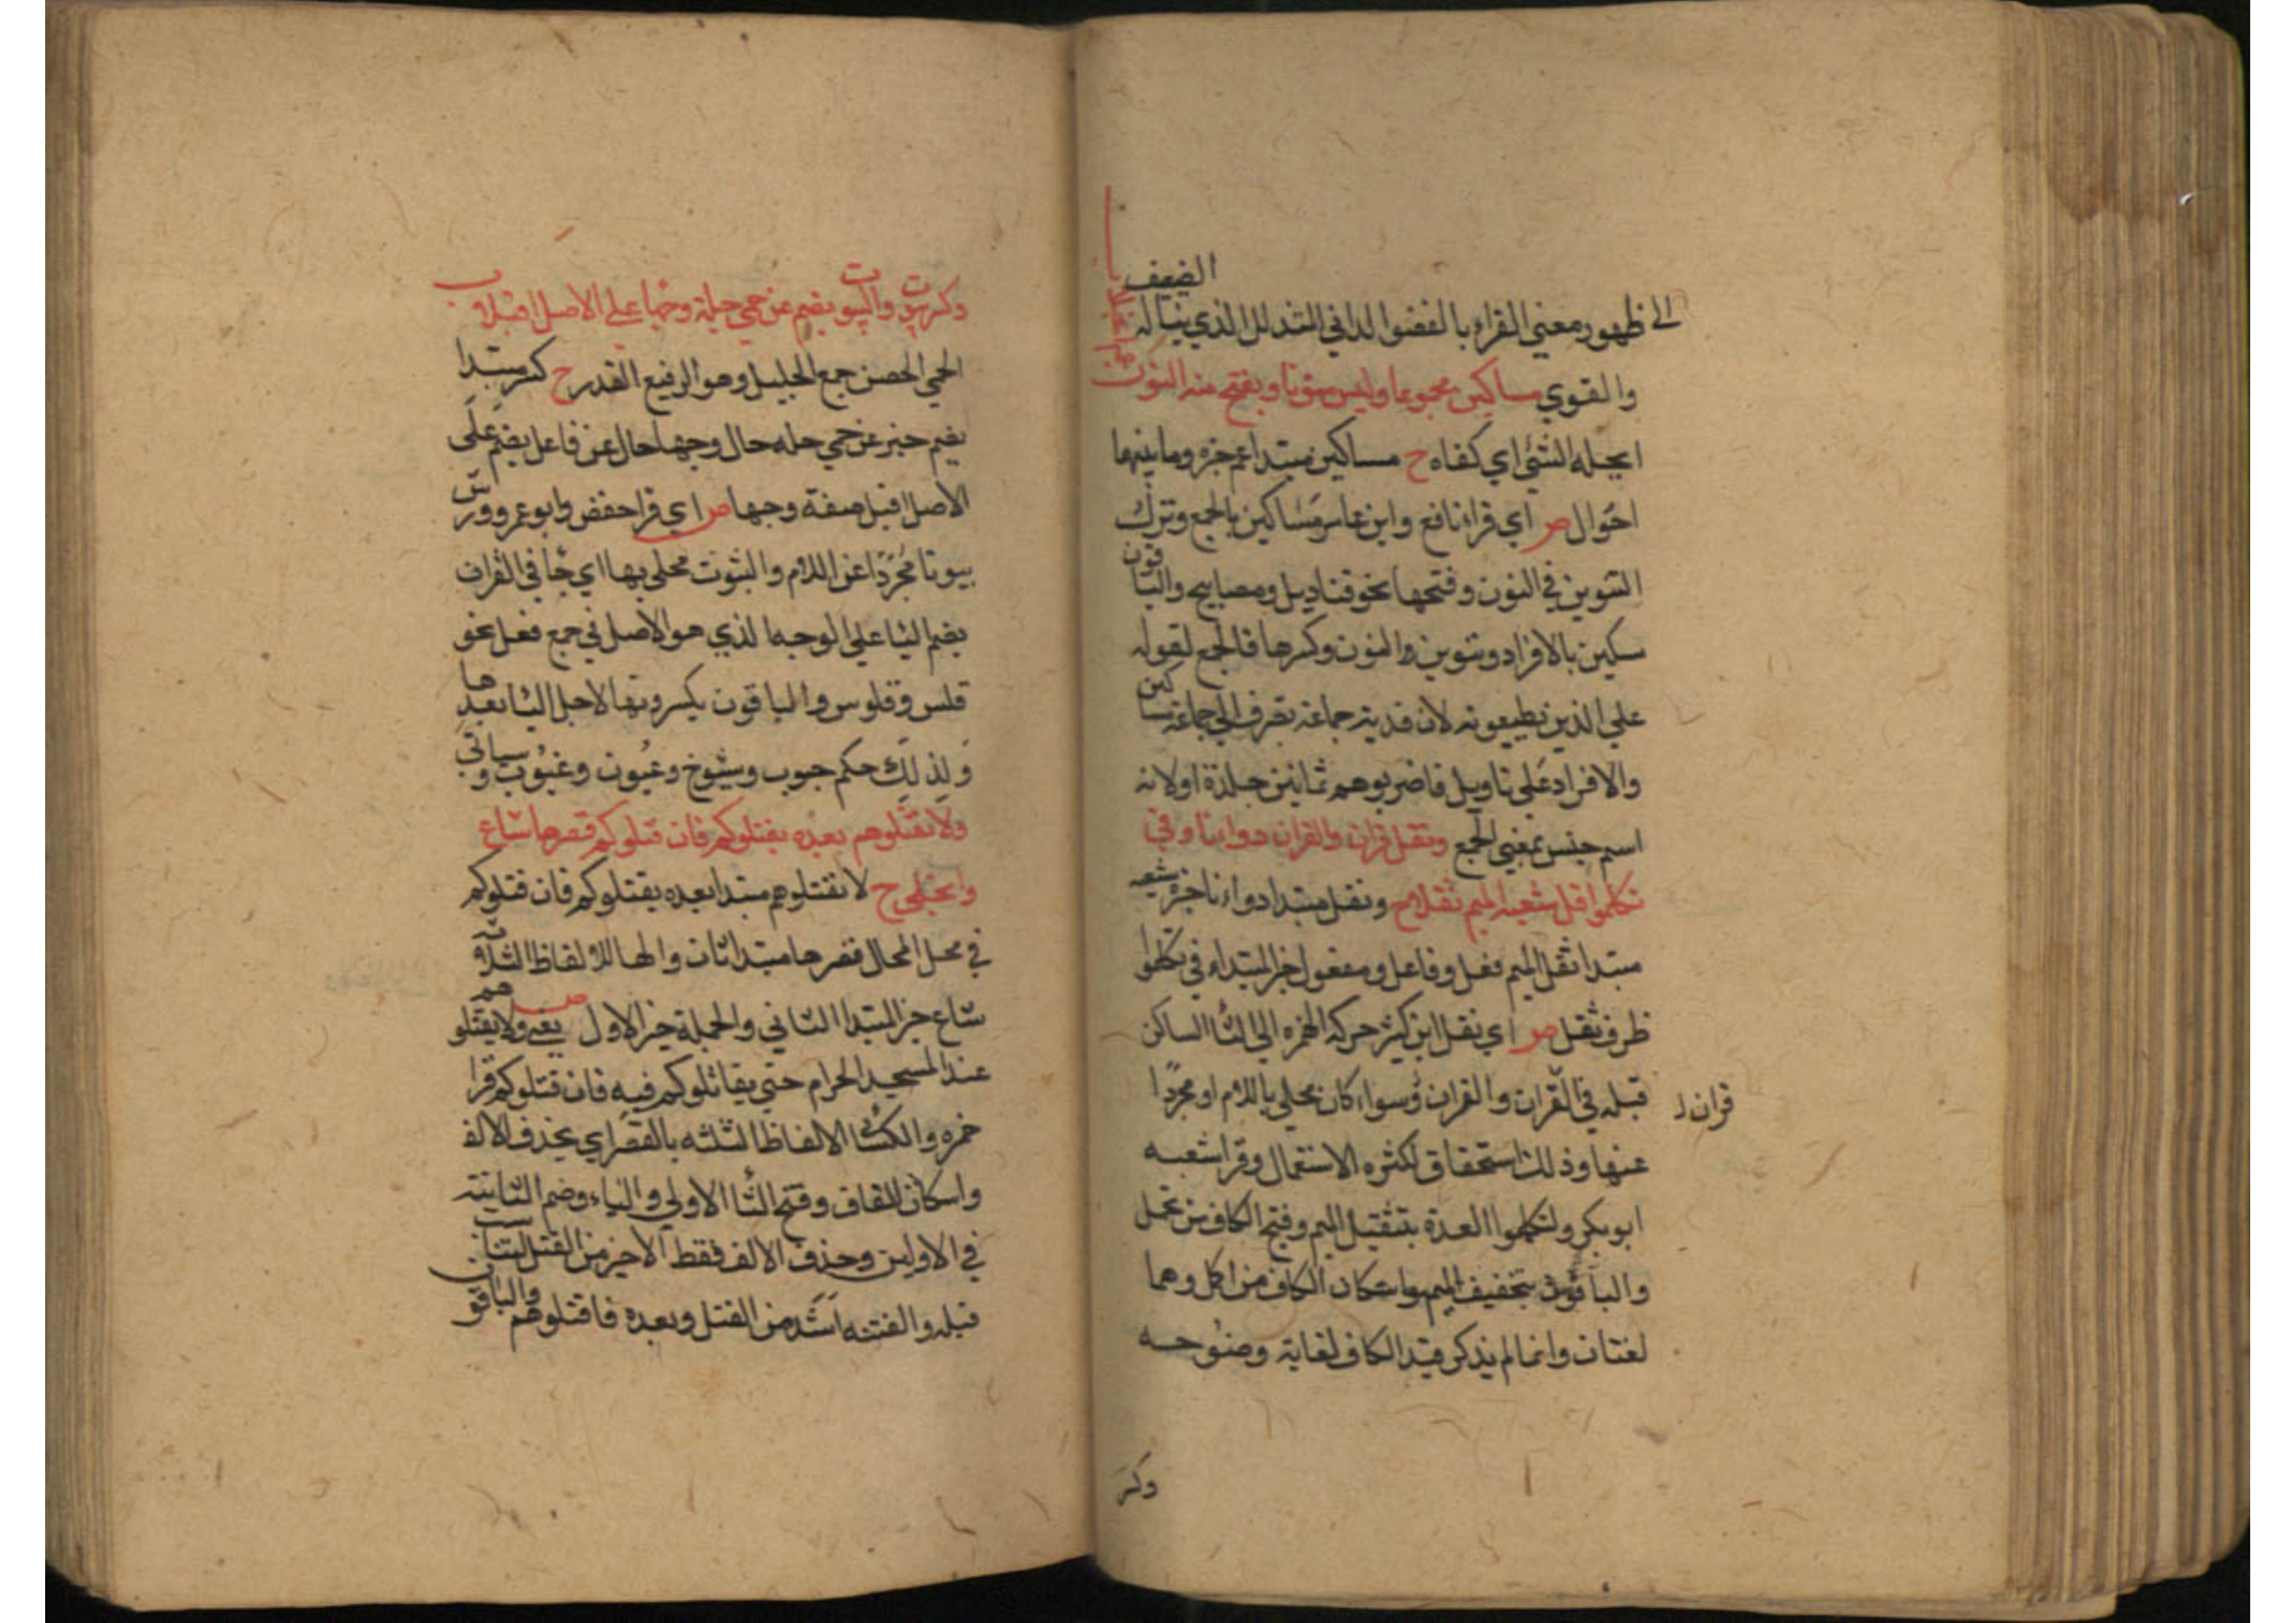 الضيف
الى ظهور معنى القراء بالفضوا لداني التدلل الذي يناله
والقوي مساكين مجموعا وليس منونا ويفتح منه النون
ابجله الشئ اي كفاه ح مساكين مبتدا عم خبره وما بينهما
احوال ص اي قراء نافع وابن عامر مساكين بالجمع وترك
التنوين في النون وفتحها نحو قناديل ومصابيح والباقون
سكين بالافراد وتنوين والنون وكسرها فالجمع لقوله
على الذين يطيعونه لان فدية جماعة تصرف الى جماعة مساكين
والافراد على تاويل فاضربوهم ثمانين جلدة اولانه
اسم جنس بمعنى الجمع ونقل قران والقران دواءنا وفي
تكملوا قل شعبة الميم ثقلا ح ونقل مبتدا دواءنا خبره شعبه
مبتدا ثقل الميم فعل وفاعل ومفعول خبر المبتداء في تكملوا
ظرف ثقل ص اي نقل ابن كثير حركه الهمزه الى الرا الساكن
قبله في القران والقران وسواء كان محلي باللام او مجردا
قران ل
عنها وذلك استحقاق لكثره الاستعمال وقرا شعبه
ابوبكر ولتكملوا العدة بتثقيل الميم وفتح الكاف من تحمل
والباقون بتخفيف الميم واسكان الكاف من اكمل وهما
لغتان وانما لم يذكر قيد الكاف لغاية وضوحه
وكسر
وكسر بيوت والبيوت يضم عن حمي جلة وجها على الاصل اقبلا
الحمي الحصن جمع الجليل وهو الرفيع القدر ح كسر مبتدا
يضم خبر عن حمي جله حال وجها حال عن فاعل يضم على
الاصل اقبل صفة وجها ص اي قرا حفص وابوعمرو وورش
بيوتا مجردا عن اللام والبيوت محلي بها اي جا في القران
بضم البا على الوجه الذي هو الاصل في جمع فعل نحو
فلس وفلوس والباقون يكسرونها لاجل اليا بعدها
ولذلك حكم جيوب وشيوخ وعيون وغيوب وسياتي
ولا تقتلوهم بعده يقتلوكم فان قتلوكم قصرها شاع
وانجلى ح لا تقتلوهم مبتدا بعده يقتلوكم فان قتلوكم
في محل الحال قصرها مبتدا ثان والها للالفاظ الثلاثة
شاع خبر المبتدا الثاني والجملة خبر الاول ص يعني ولا يقتلوهم
عند المسجد الحرام حتى يقاتلوكم فيه فان قتلوكم قرا
حمزه والكسائي الالفاظ الثلثه بالقصر اي بحذف الالف
واسكان القاف وفتح التا الاولى والياء وضم الثانية
في الاولين وحذف الالف فقط الاخير من القتل ليتناسب
قبله والفتنه اشد من القتل وبعده فاقتلوهم والباقون